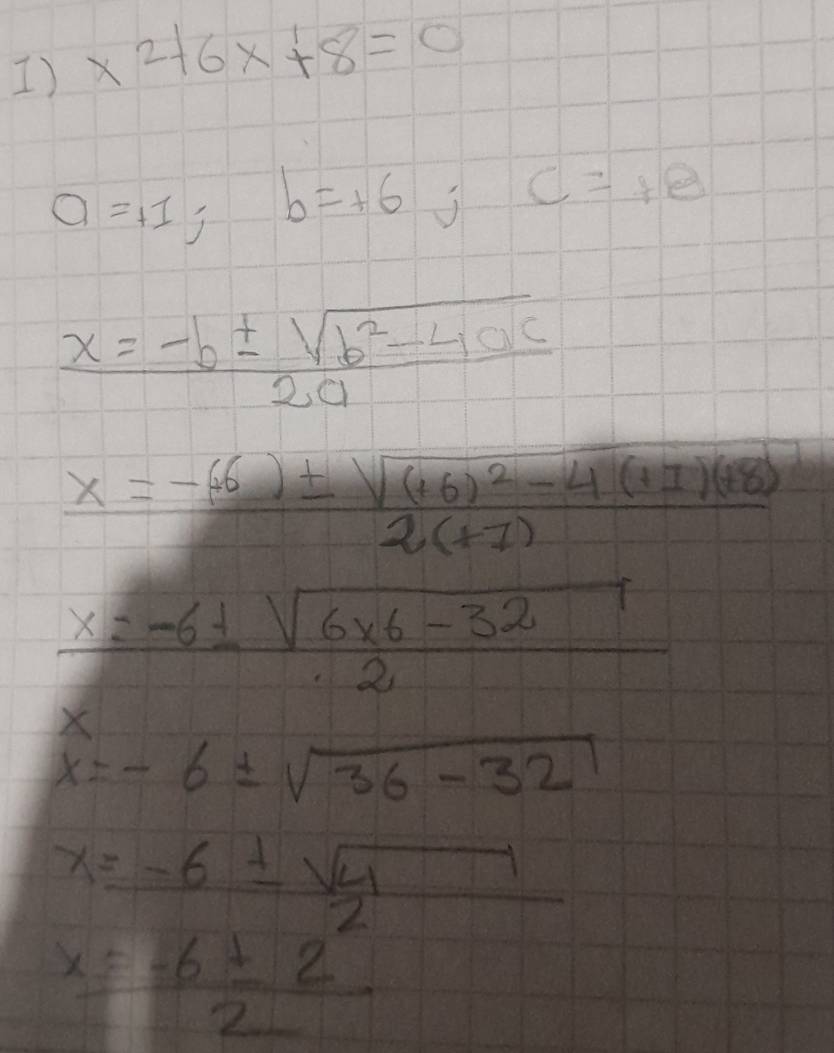 1) x²+6x+8=0
a=+1; b=+6; c=+8
x = -b ± √b²-4ac
2a
x = -(+6) ± √(+6)² - 4(+1)(+8)
2(+1)
x = -6 ± √6x6 - 32
2
x
x = - 6 ± √36 - 32
x = -6 ± √4
2
x = -6 ± 2
2